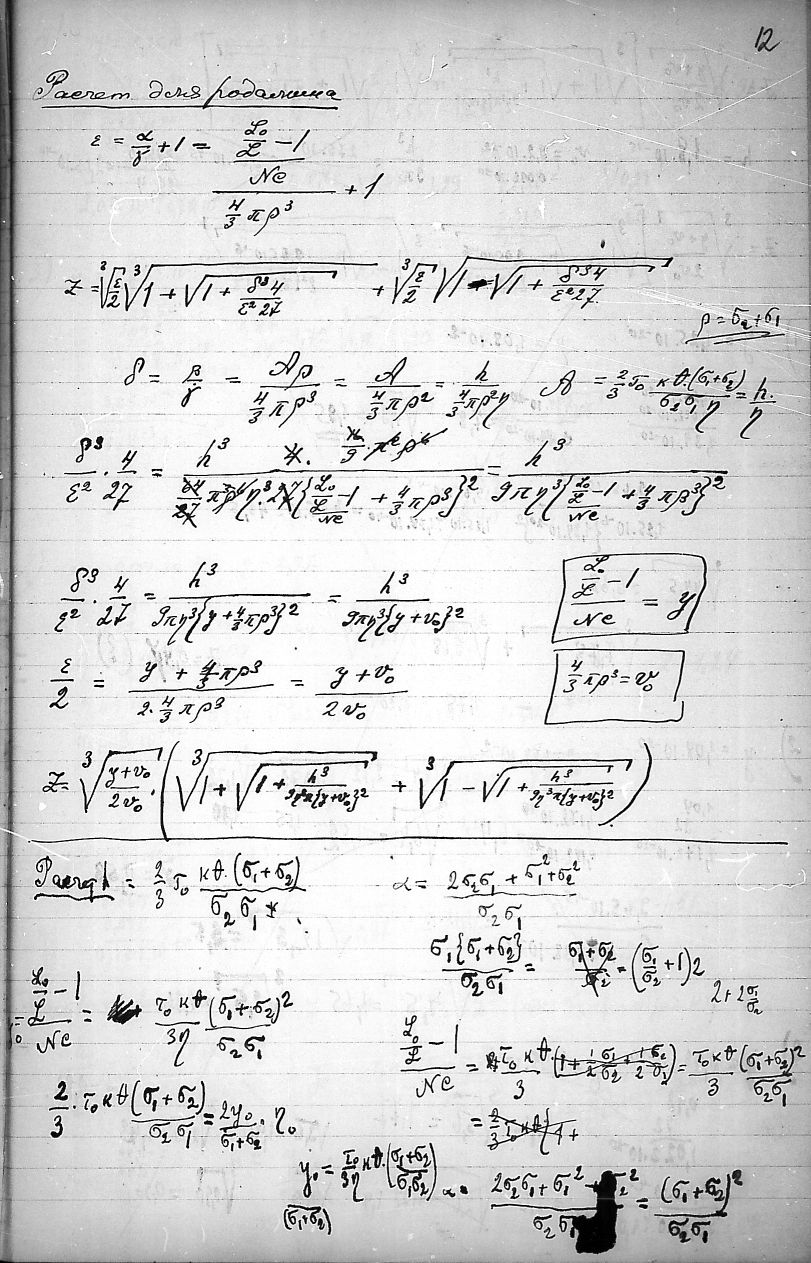 12
Расчет для родамина
ε = α/γ + 1 = ((L₀/L − 1)/Nc)/(4/3 πρ³) + 1
Z = ∛(ε/2) ∛(1 + √(1 + δ³4/ε²27)) + ∛(ε/2) √(1 − √(1 + δ³4/ε²27))
ρ = σ₂ + σ₁
δ = β/γ = Aρ/(4/3 πρ³) = A/(4/3 πρ²) = h/(4/3 πρ²η) A = 2/3 τ₀ кθ·(σ₁+σ₂)/(σ₂σ₁η) = h/η
δ³/ε² · 4/27 = h³ 4 · 16/9 · π²ρ⁶/(64/27 π³ρ⁶η³27{(L₀/L − 1)/Nc + 4/3 πρ³}²) = h³/(9πη³{(L₀/L − 1)/Nc + 4/3 πρ³}²)
δ³/ε² · 4/27 = h³/(9πη³{y + 4/3 πρ³}²) = h³/(9πη³{y + v₀}²)
(L₀/L − 1)/Nc = y
ε/2 = (y + 4/3 πρ³)/(2·4/3 πρ³) = (y + v₀)/(2v₀)
4/3 πρ³ = v₀
Z = ∛((y+v₀)/2v₀) · (∛(1 + √(1 + h³/(9η³π{y+v₀}²))) + ∛(1 − √(1 + h³/(9η³π{y+v₀}²))))
Расчет h = 2/3 τ₀ кθ·(σ₁+σ₂)/(σ₂σ₁)
α = (2σ₂σ₁ + σ₁² + σ₂²)/(σ₂σ₁)
σ₁{σ₁+σ₂}/(σ₂σ₁) = (σ₁+σ₂)/σ₂ = (σ₁/σ₂ + 1)2
2 + 2σ/σ₂
(L₀/L − 1)/Nc = τ₀кθ/3η (σ₁+σ₂)²/(σ₂σ₁)
(L₀/L − 1)/Nc = τ₀кθ/3 · (1 + 1/2 σ₁/σ₂ + 1/2 σ₂/σ₁) = τ₀кθ/3 (σ₁+σ₂)²/(σ₂σ₁)
2/3 · τ₀кθ(σ₁+σ₂)/(σ₂σ₁) = 2y₀/(σ₁+σ₂) · η₀
= 2/3 τ₀кθ{1 +
y₀/(σ₁+σ₂) = τ₀/3η кθ·(σ₁+σ₂)/(σ₁σ₂)
α = (2σ₂σ₁ + σ₁² + σ₂²)/(σ₂σ₁) = (σ₁+σ₂)²/(σ₂σ₁)